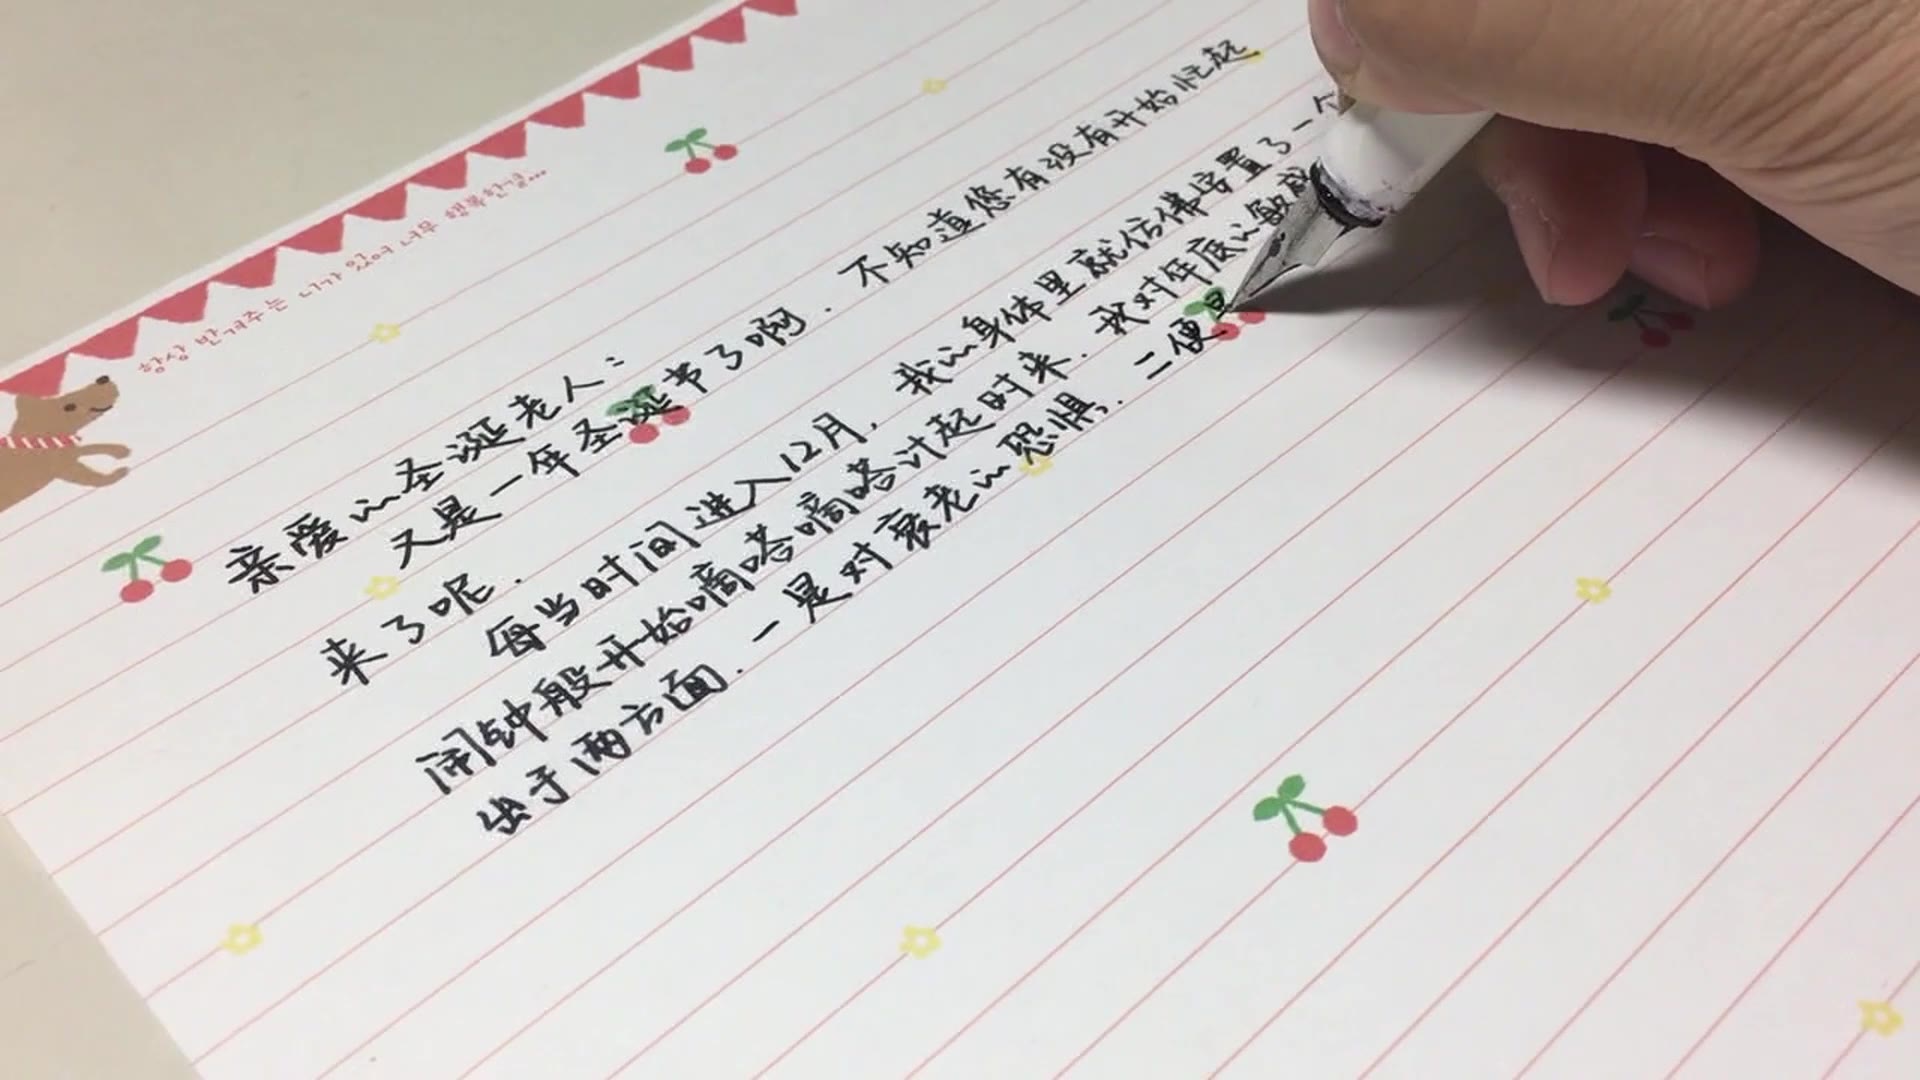 항상 반겨주는 너가 있어 너무 행복한걸...
亲爱的圣诞老人:
又是一年圣诞节了啊. 不知道您有没有开始忙起
来了呢.
每当时间进入12月, 我的身体里就仿佛安置了一个
闹钟般开始嘀嗒嘀嗒计起时来. 我对年底的敏感
出于两方面. 一是对衰老的恐惧. 二便是